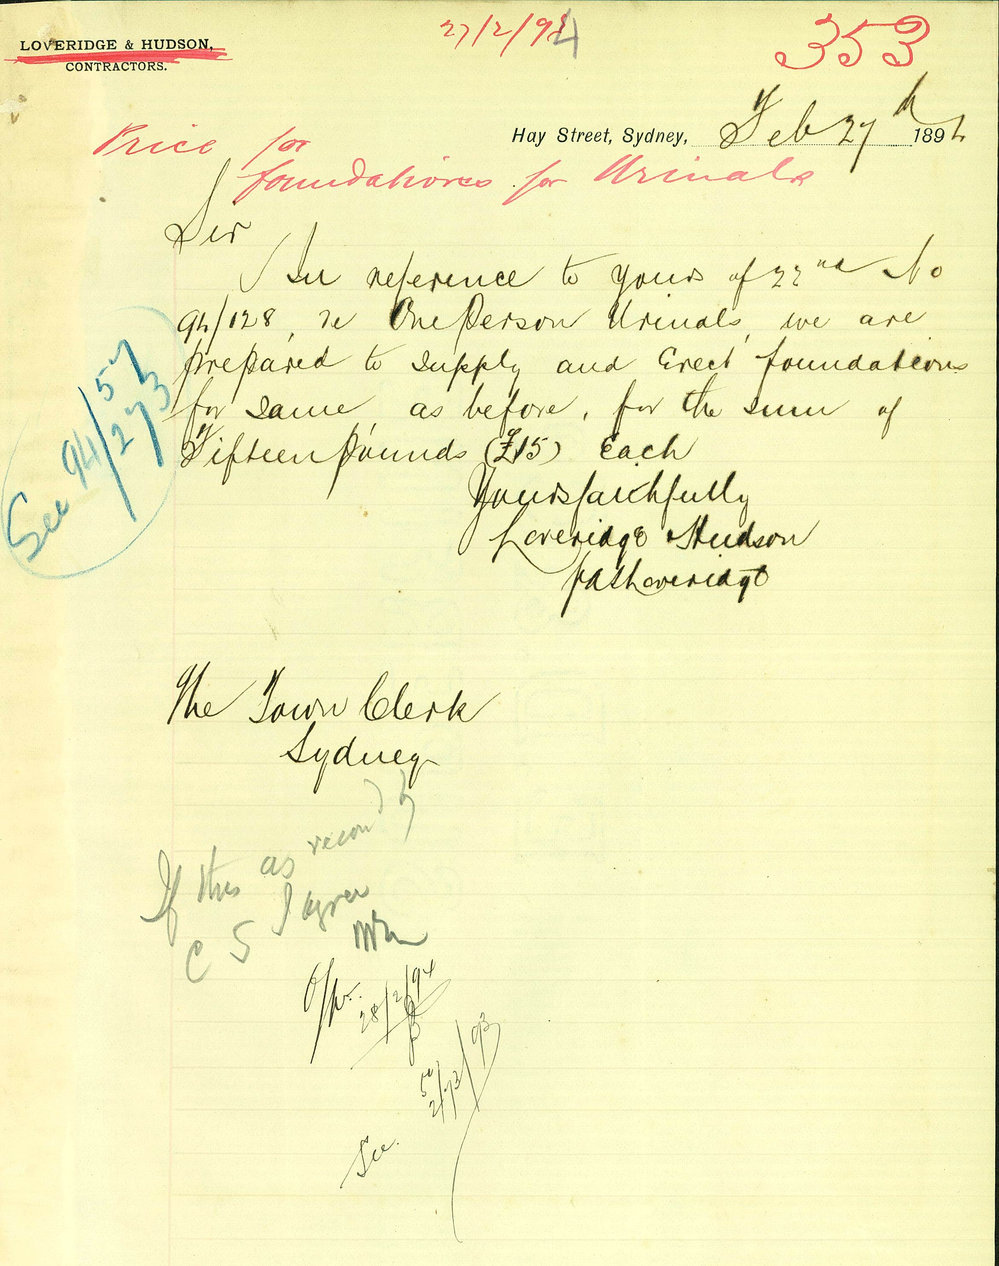 27/2/94
353
LOVERIDGE & HUDSON,
CONTRACTORS.
Hay Street, Sydney, Feb 27th 1894
Price for
foundations for Urinals
Sir
In reference to yours of 22nd No
94/128, re One Person Urinals, we are
prepared to supply and Erect foundations
for same as before, for the sum of
Fifteen Pounds (£15) Each
Yours faithfully
Loveridge & Hudson
Loveridge
See 94/57
273
The Town Clerk
Sydney
If this as recomd by
C S I agree
28/2/94
See